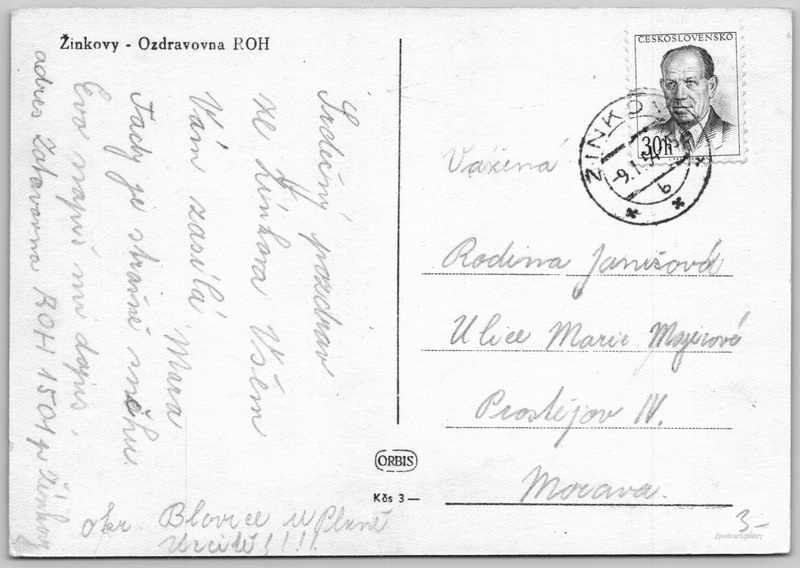 Žinkovy - Ozdravovna ROH
Srdečný pozdrav
ze Žinkova Všem
Vám zasílá
Mara
Tady je strašně sněhu
Evo napiš mi dopis.
adres Zotavovna ROH 1501 p Žinkovy
okr. Blovice u Plzně
Určitě!!!!
ČESKOSLOVENSKO
30h
ŽINKOVY
-9.1.
b
Vážená
Rodina Janišová
Ulice Marie Majerové
Prostějov IV.
Morava.
ORBIS
Kčs 3—
3-